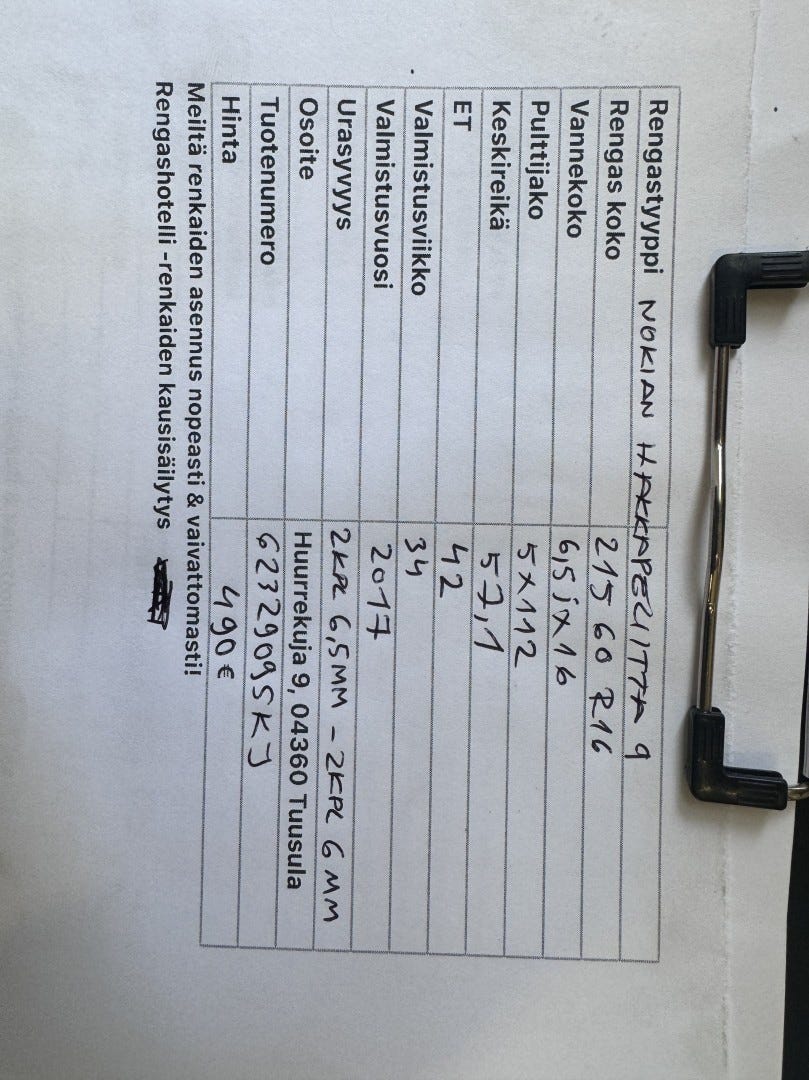 Rengastyyppi NOKIAN HAKKAPELIITTA 9
Rengas koko 215 60 R16
Vannekoko 6,5jx16
Pulttijako 5x112
Keskireikä 57,1
ET 42
Valmistusviikko 34
Valmistusvuosi 2017
Urasyvyys 2KPL 6,5MM - 2KPL 6MM
Osoite Huurrekuja 9, 04360 Tuusula
Tuotenumero 6232909SKJ
Hinta 490€
Meiltä renkaiden asennus nopeasti & vaivattomasti!
Rengashotelli -renkaiden kausisäilytys